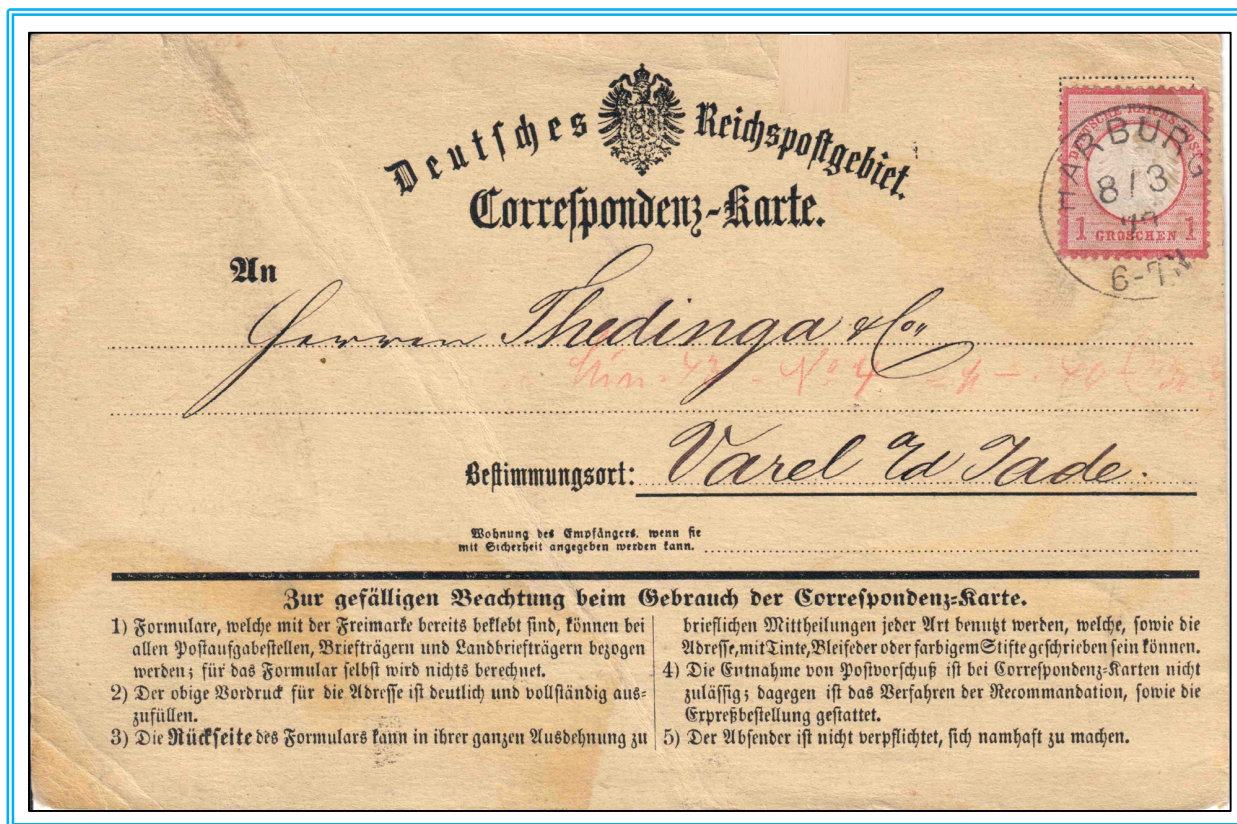 Deutsches Reichspostgebiet.
Correspondenz-Karte.
DEUTSCHE REICHS-POST
1 GROSCHEN 1
HARBURG
8 / 3
6-7 N
An
Herren Thedinga & Co
Bestimmungsort: Varel a/d Jade.
Wohnung des Empfängers, wenn sie
mit Sicherheit angegeben werden kann.
Zur gefälligen Beachtung beim Gebrauch der Correspondenz-Karte.
1) Formulare, welche mit der Freimarke bereits beklebt sind, können bei
allen Postaufgabestellen, Briefträgern und Landbriefträgern bezogen
werden; für das Formular selbst wird nichts berechnet.
2) Der obige Vordruck für die Adresse ist deutlich und vollständig aus-
zufüllen.
3) Die Rückseite des Formulars kann in ihrer ganzen Ausdehnung zu
brieflichen Mittheilungen jeder Art benutzt werden, welche, sowie die
Adresse, mit Tinte, Bleifeder oder farbigem Stifte geschrieben sein können.
4) Die Entnahme von Postvorschuß ist bei Correspondenz-Karten nicht
zulässig; dagegen ist das Verfahren der Recommandation, sowie die
Expreßbestellung gestattet.
5) Der Absender ist nicht verpflichtet, sich namhaft zu machen.